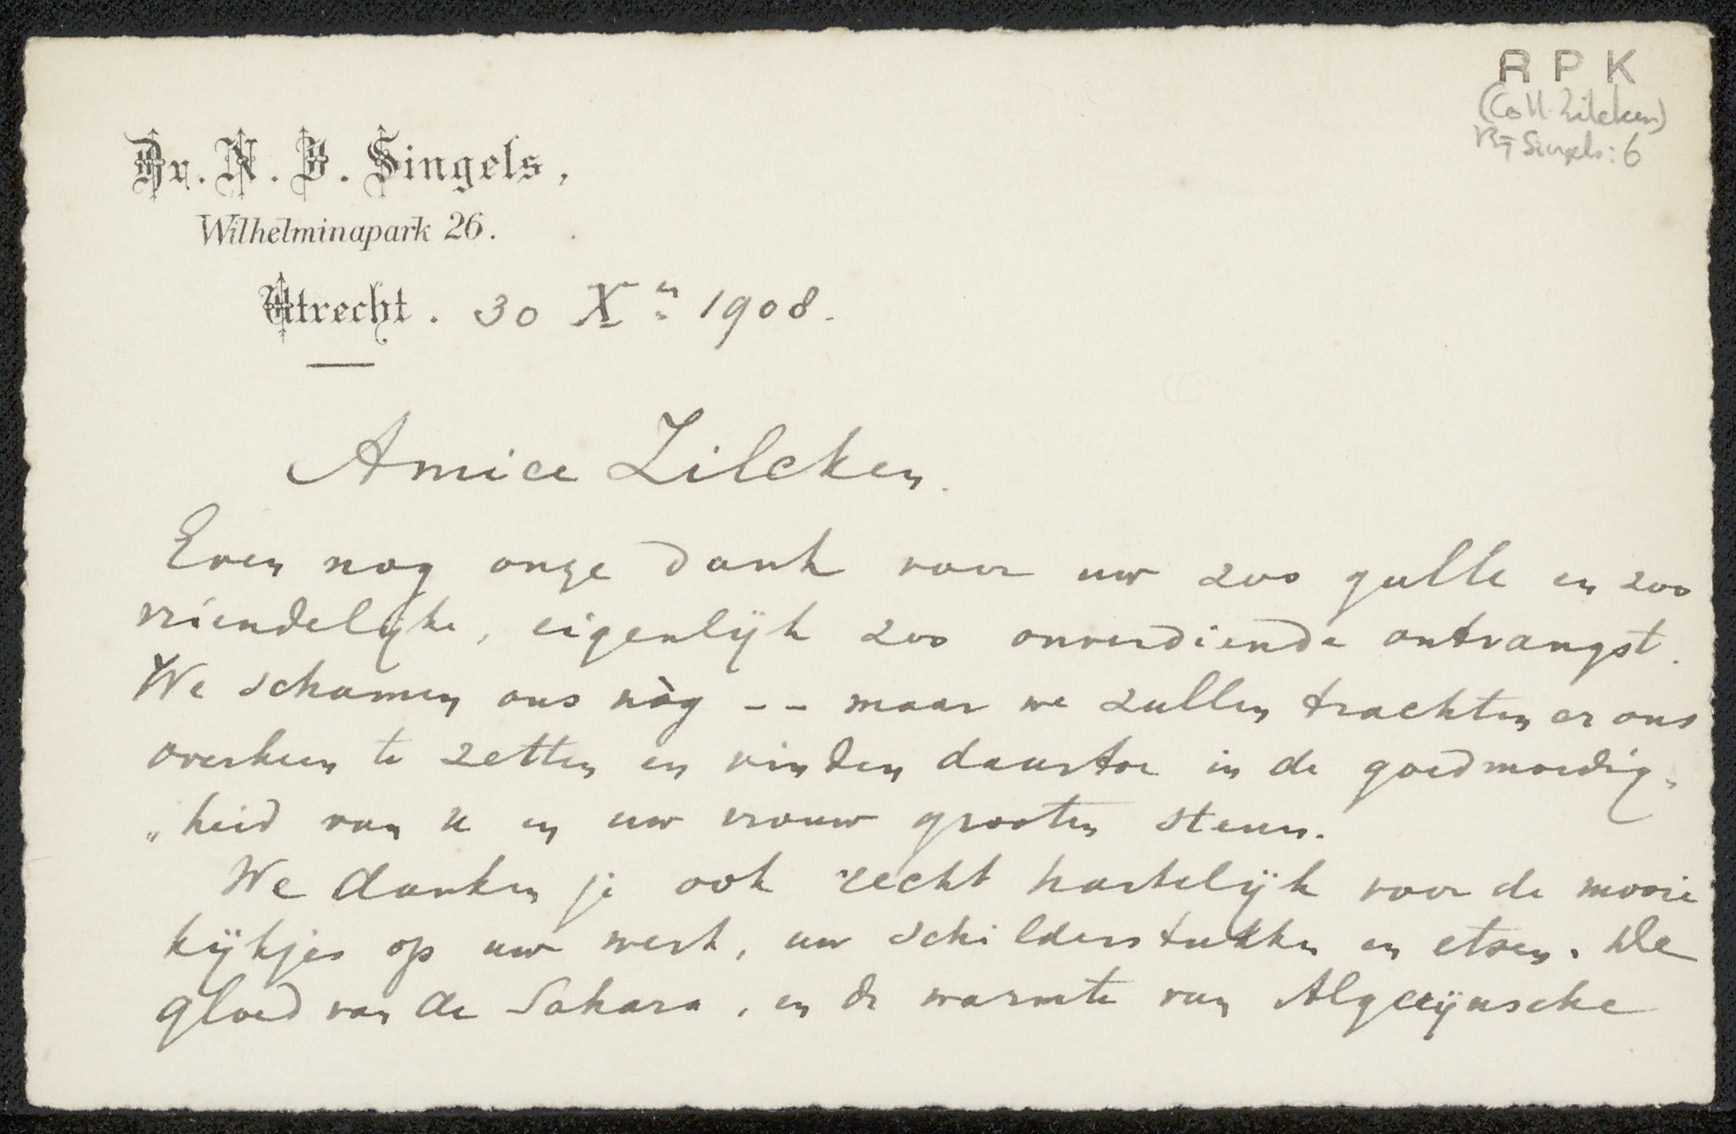 R P K
(Coll. Zilcken)
Br Singels: 6
Dr. N. J. Singels,
Wilhelminapark 26.
Utrecht. 30 Xr 1908.
Amice Zilcken.
Even nog onze dank voor uw zoo gulle en zoo
vriendelijke, eigenlijk zoo onverdiende ontvangst.
We schamen ons nòg -- maar we zullen trachten er ons
overheen te zetten en vinden daartoe in de goedmoedig-
„heid van u en uw vrouw grooten steun.
We danken je ook recht hartelijk voor de mooie
kijkjes op uw werk, uw schilderstukken en etsen. De
gloed van de Sahara, en de warmte van Algerijnsche